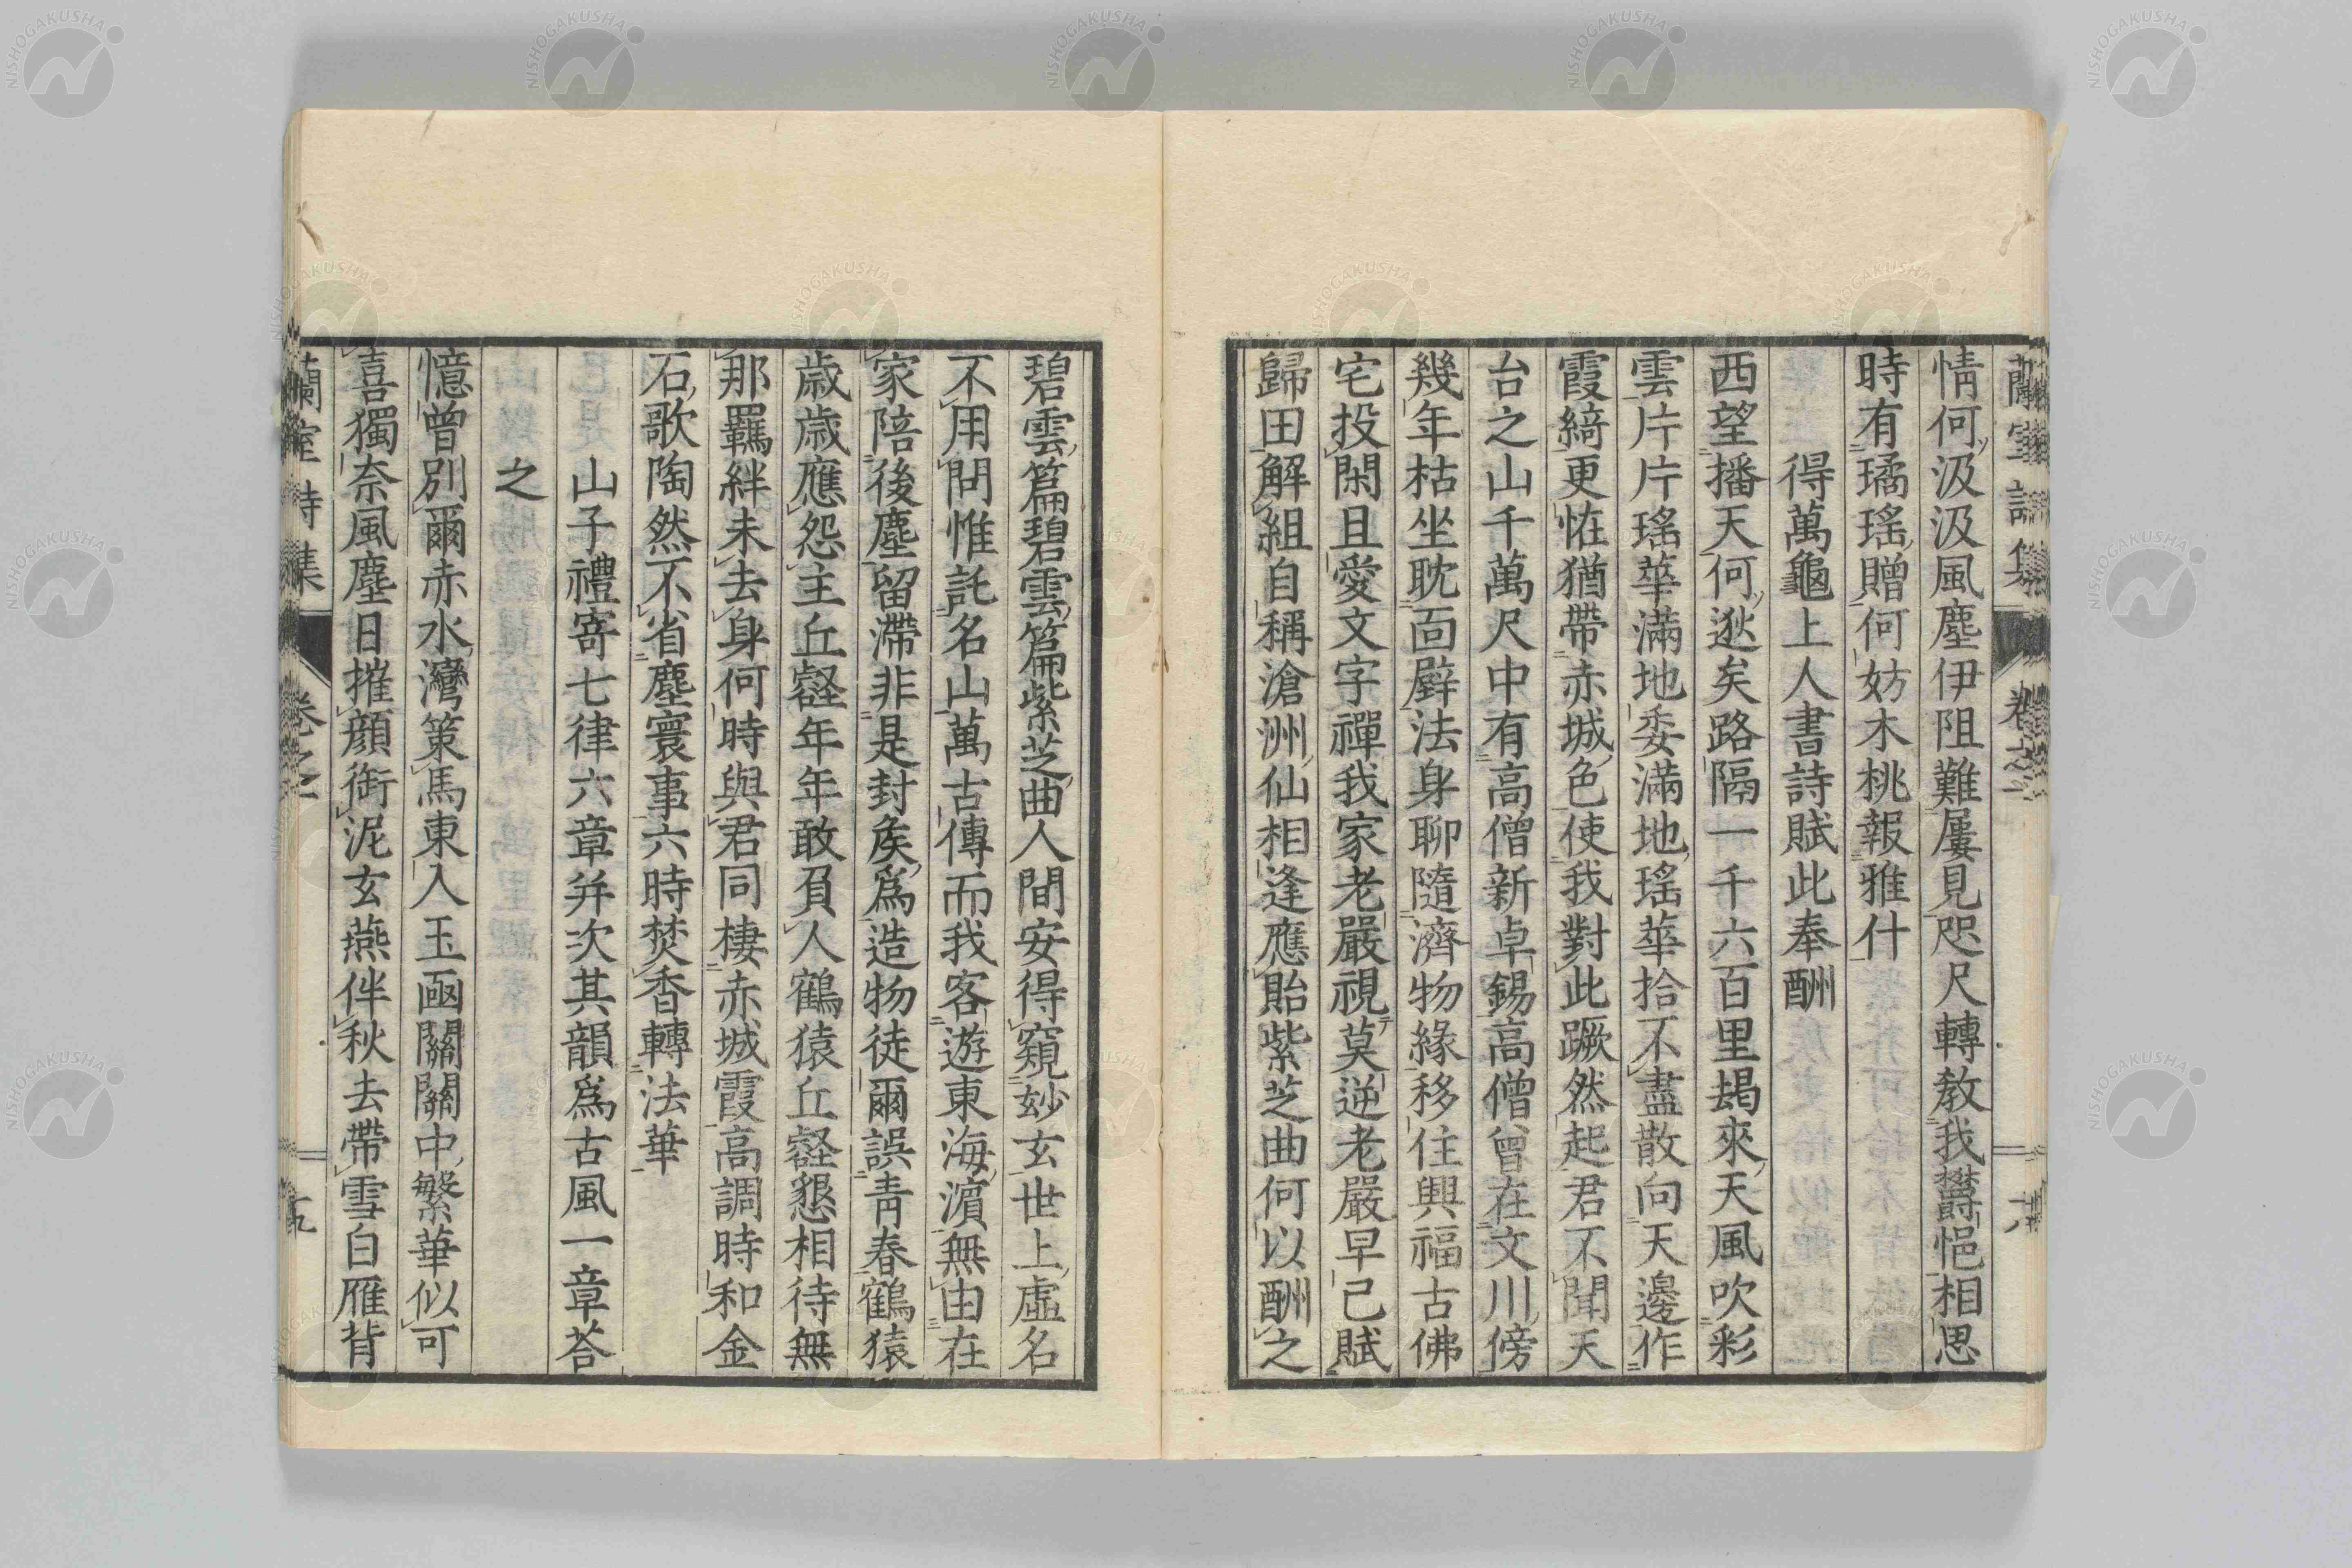 蘭室詩集 卷之二
情何汲汲風塵伊阻難屢見咫尺轉教我欝悒相思
時有璚瑤贈何妨木桃報雅什
得萬龜上人書詩賦此奉酬
西望播天何逖矣路隔一千六百里朅來天風吹彩
雲片片瑤華滿地委滿地瑤華拾不盡散向天邊作
霞綺更恠猶帶赤城色使我對此蹶然起君不聞天
台之山千萬尺中有高僧新卓錫高僧曾在文川傍
幾年枯坐耽面壁法身聊隨濟物緣移住興福古佛
宅投閑且愛文字禪我家老嚴視莫逆老嚴早已賦
歸田解組自稱滄洲仙相逢應貽紫芝曲何以酬之
碧雲篇碧雲篇紫芝曲人間安得窺妙玄世上虛名
不用問惟託名山萬古傳而我客遊東海濵無由在
家陪後塵留滯非是封矦爲造物徒爾誤青春鶴猿
歲歲應怨主丘壑年年敢負人鶴猿丘壑懇相待無
那羈絆未去身何時與君同棲赤城霞高調時和金
石歌陶然不省塵寰事六時焚香轉法華
山子禮寄七律六章并次其韻爲古風一章荅
之
憶曾別爾赤水灣策馬東入玉凾關關中繁華似可
喜獨奈風塵日摧顔銜泥玄燕伴秋去帶雪白雁背
蘭室詩集 卷之二 十五